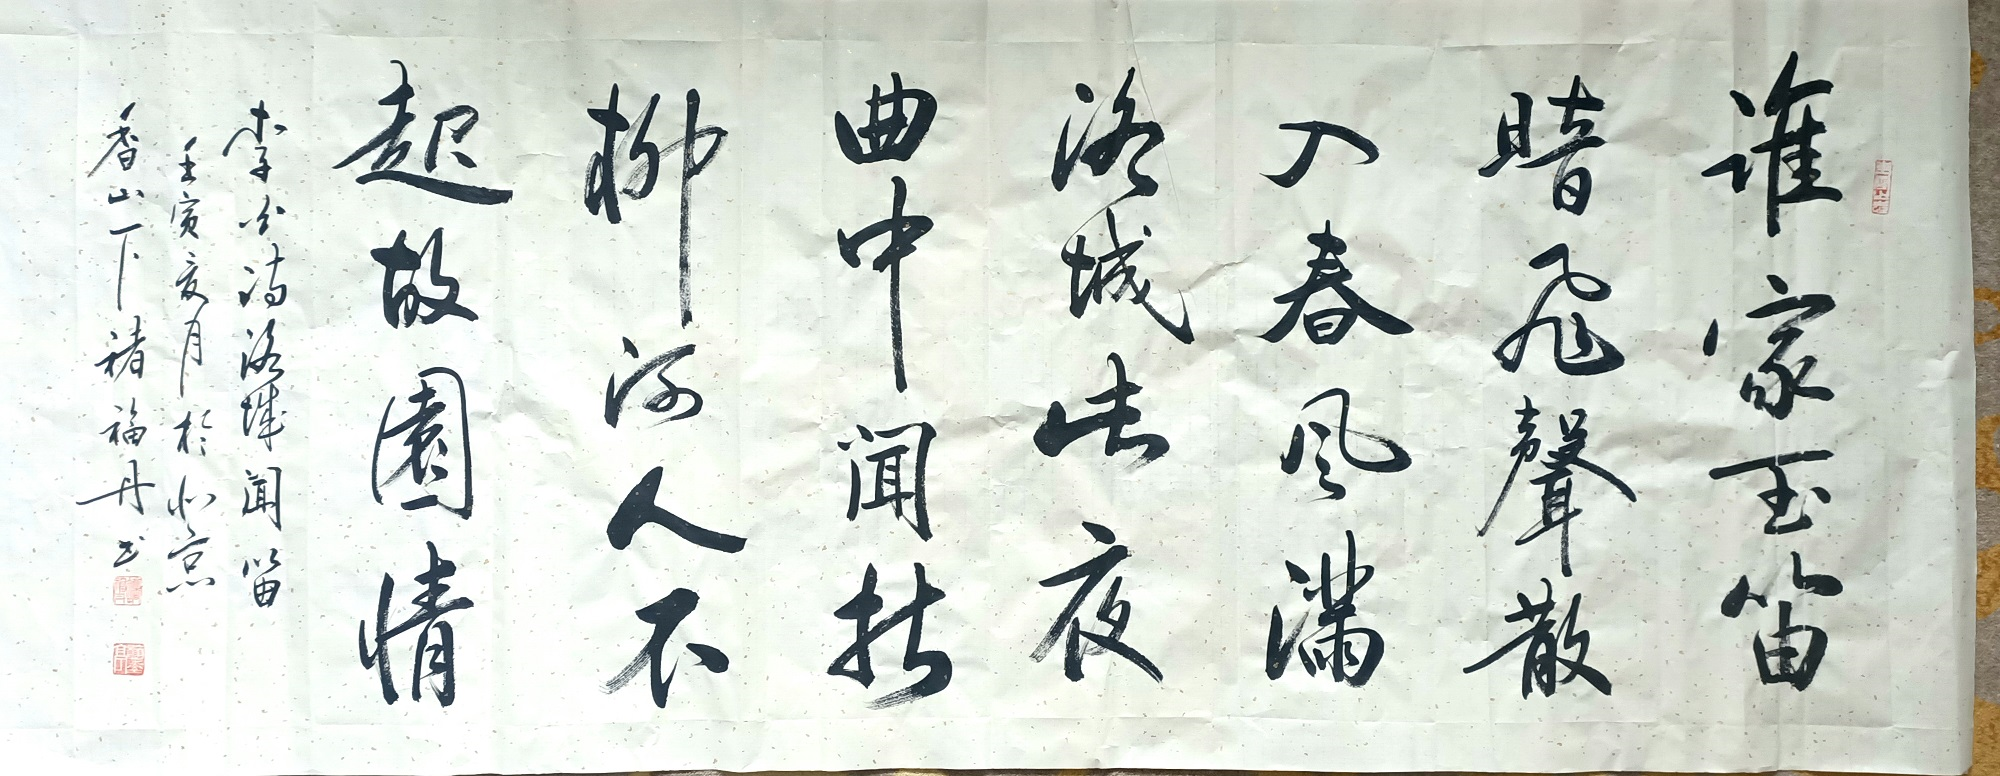 谁家玉笛
暗飛聲散
入春风满
洛城此夜
曲中闻折
柳何人不
起故园情
李白诗洛城闻笛
壬寅夏月於北京
香山下褚福丹书